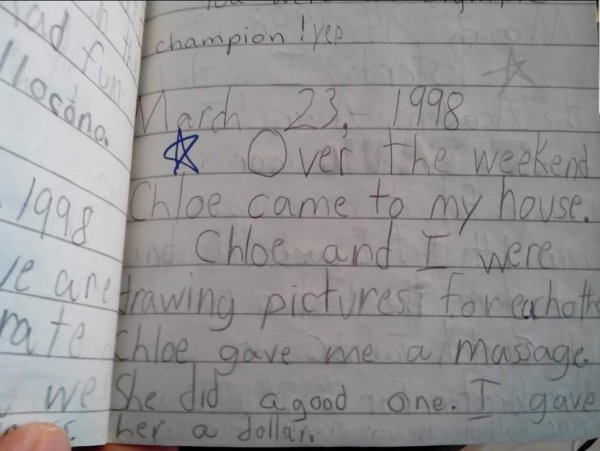 had fun
llocona.
1998
we are
rate
we
You were
champion! yep
March 23, 1998
Over the weekend
Chloe came to my house.
Chloe and I were
drawing pictures for eachoth
Chloe gave me a massage
She did a good one. I gave
her a dollar.